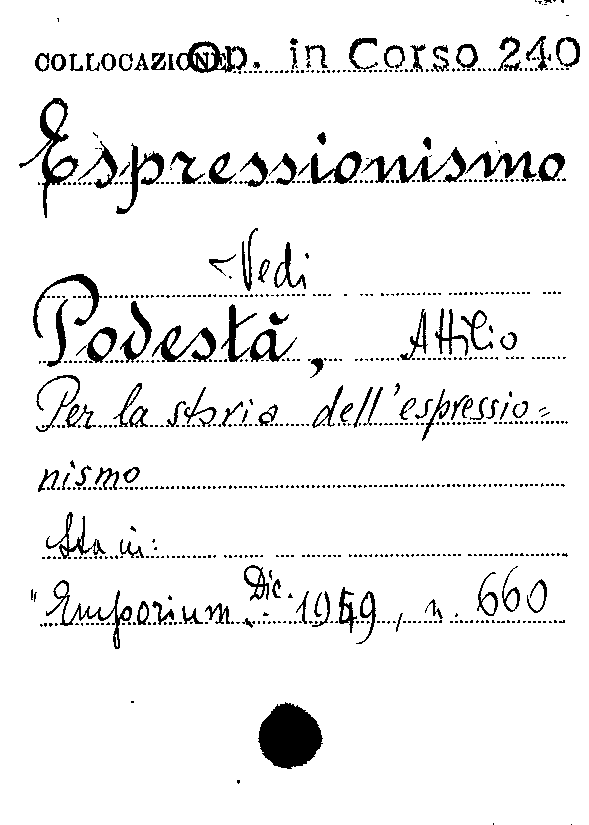 COLLOCAZIONE Op. in Corso 240
Espressionismo
Vedi
Podestà, Attilio
Per la storia dell'espressio=
nismo
Sta in:
"Emporium" Dic. 1949, n. 660